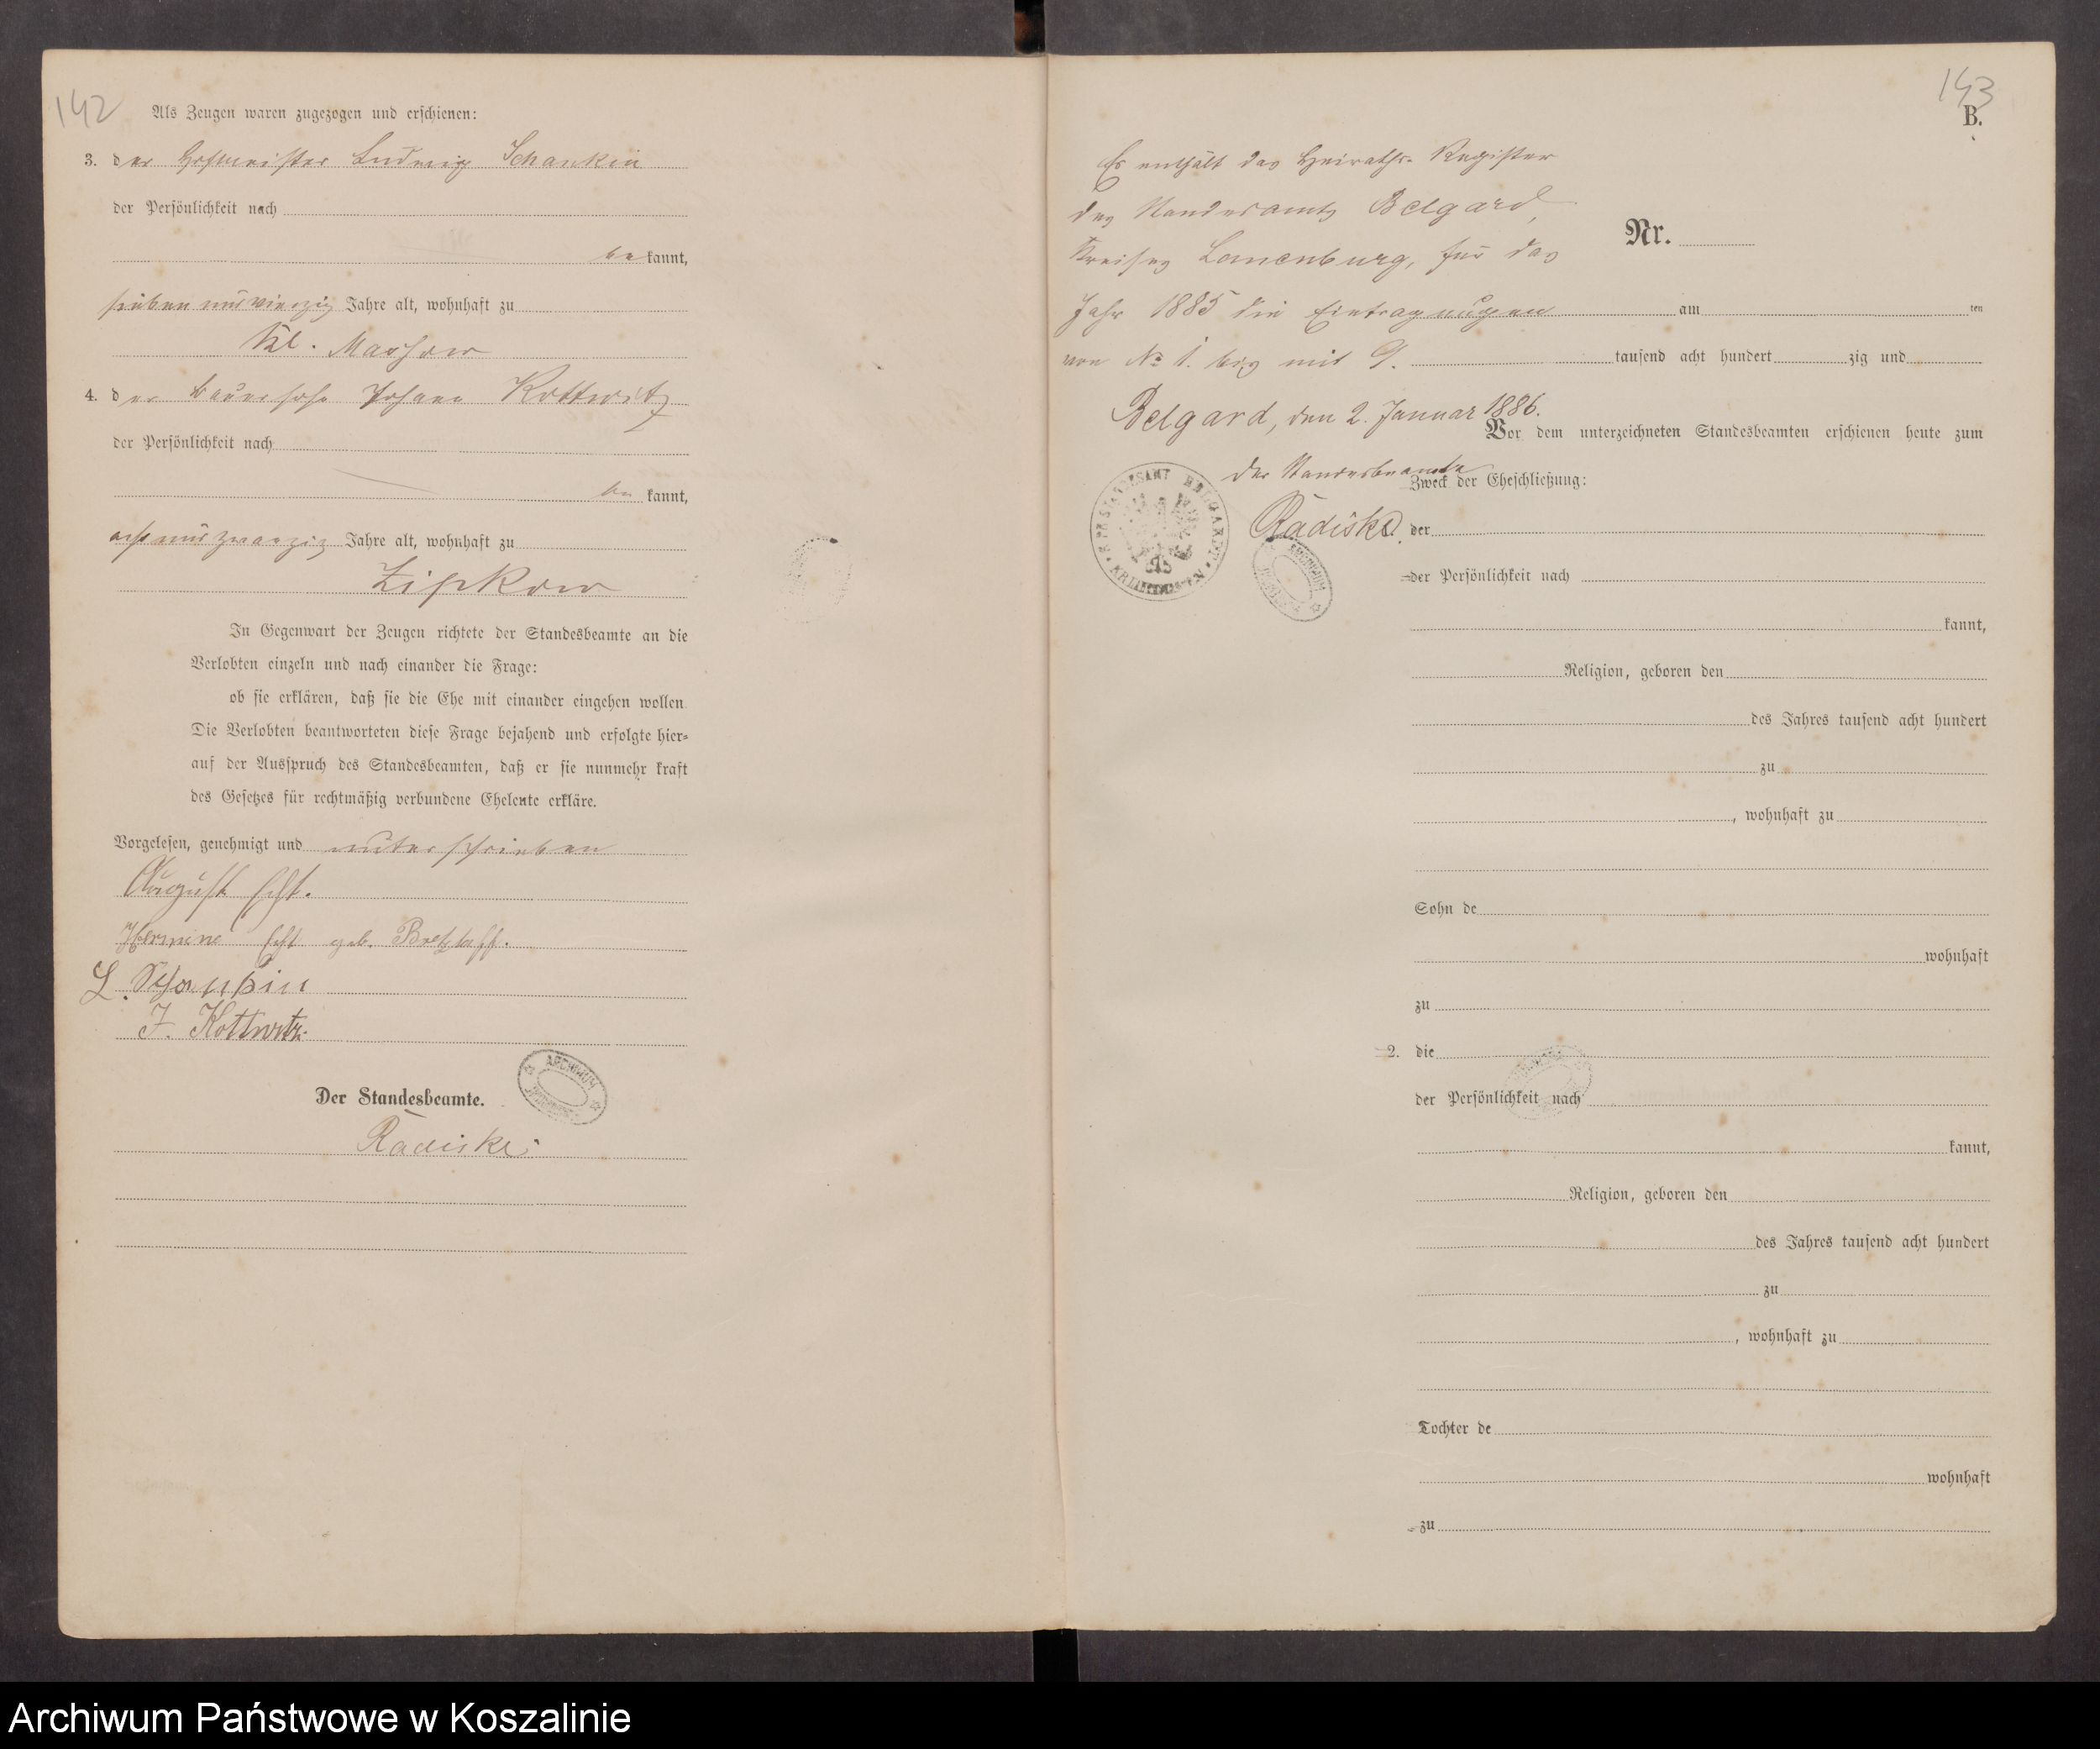 142
Als Zeugen waren zugezogen und erschienen:
3. der Hofmeister Ludwig Schankin
der Persönlichkeit nach
be kannt,
sieben und vierzig Jahre alt, wohnhaft zu
Kl. Massow
4. der Bauersohn Johann Kottwitz
der Persönlichkeit nach
be kannt,
acht und zwanzig Jahre alt, wohnhaft zu
Zipkow
In Gegenwart der Zeugen richtete der Standesbeamte an die
Verlobten einzeln und nach einander die Frage:
ob sie erklären, daß sie die Ehe mit einander eingehen wollen
Die Verlobten beantworteten diese Frage bejahend und erfolgte hier=
auf der Ausspruch des Standesbeamten, daß er sie nunmehr kraft
des Gesetzes für rechtmäßig verbundene Eheleute erkläre.
Vorgelesen, genehmigt und unterschrieben
August Echt.
Hermine Echt geb. Bretzlaff.
L. Schankin
J. Kottwitz.
Der Standesbeamte.
ARCHIWUM
Radiske
143
B.
Es enthält das Heiraths-Register
des Standesamts Belgard,
Kreises Lauenburg, für das
Nr.
Jahr 1885 die Eintragungen am ten
von No 1. bis mit 9. tausend acht hundert zig und
Belgard, den 2. Januar 1886.
Vor dem unterzeichneten Standesbeamten erschienen heute zum
Der Standesbeamte
Zweck der Eheschließung:
Radiske. der
der Persönlichkeit nach
kannt,
Religion, geboren den
des Jahres tausend acht hundert
zu
, wohnhaft zu
Sohn de
wohnhaft
zu
2. die
der Persönlichkeit nach
kannt,
Religion, geboren den
des Jahres tausend acht hundert
zu
, wohnhaft zu
Tochter de
wohnhaft
zu
Archiwum Państwowe w Koszalinie